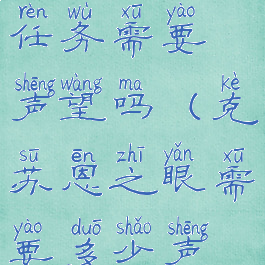 rèn wù xū yào
任务需要
shēng wàng ma kè
声望吗（克
sū ēn zhī yǎn xū
苏恩之眼需
yào duō shǎo shēng
要多少声